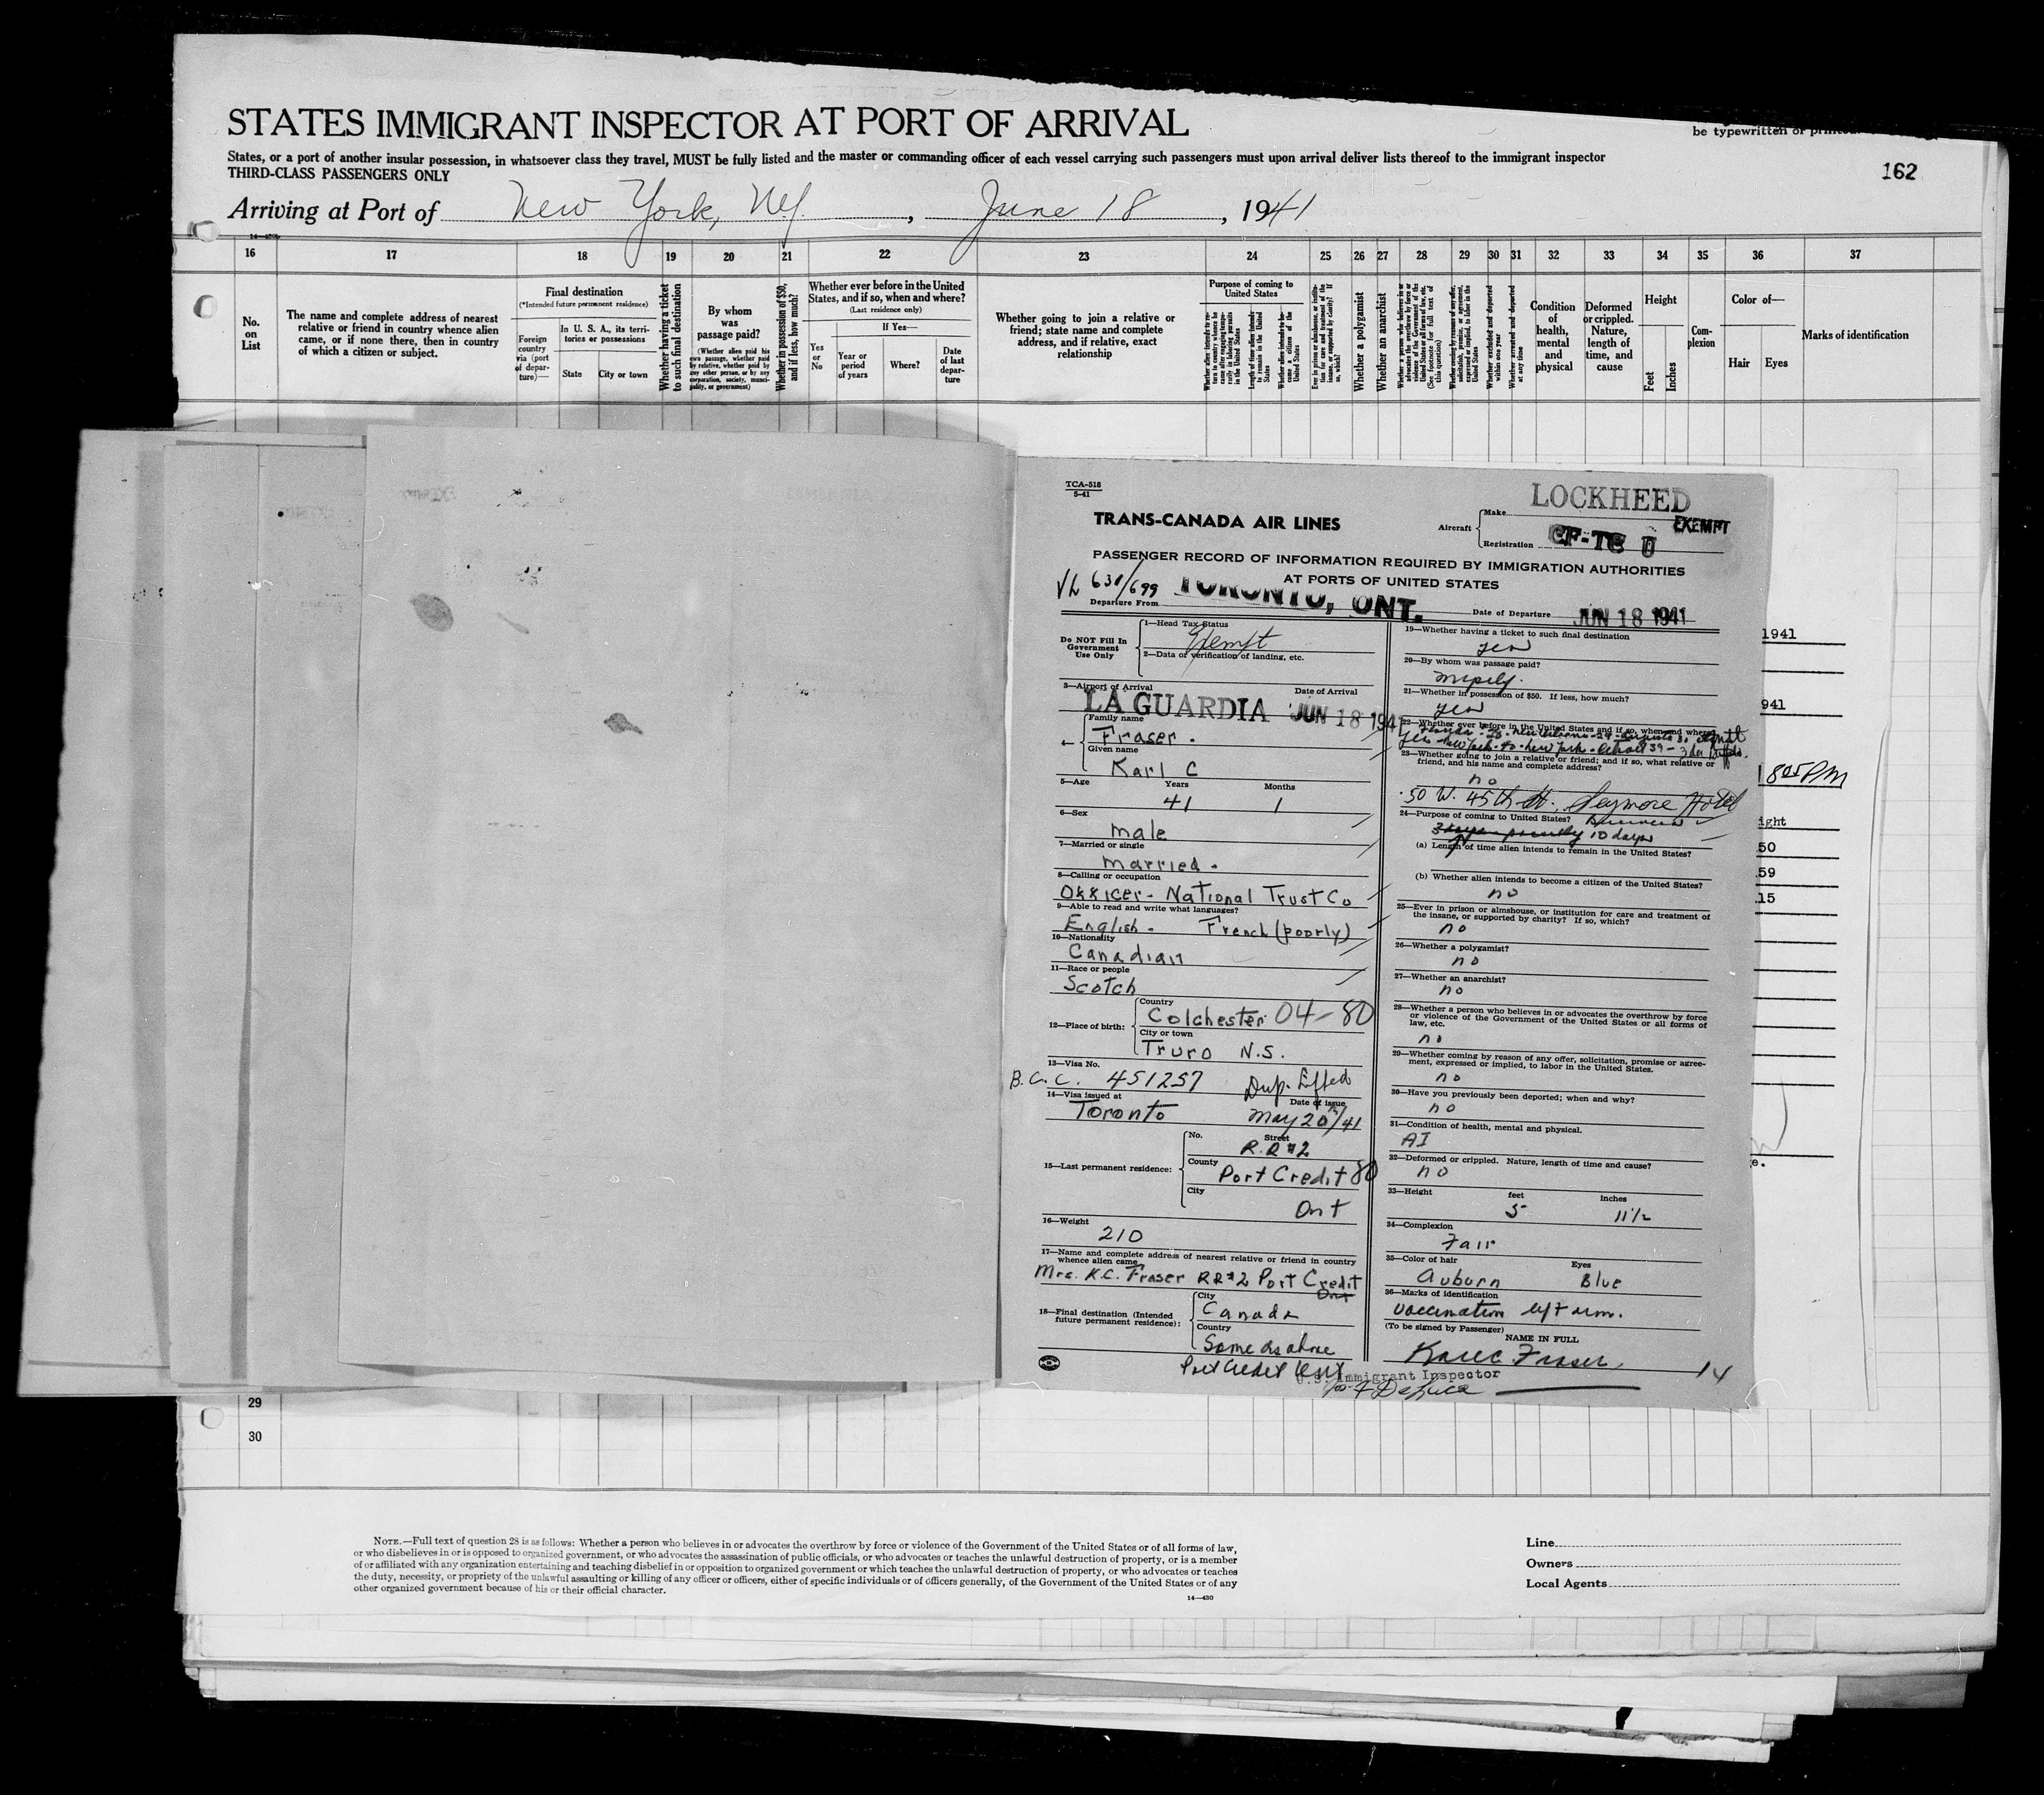 STATES IMMIGRANT INSPECTOR AT PORT OF ARRIVAL
be typewritten or
States, or a port of another insular possession, in whatsoever class they travel, MUST be fully listed and the master or commanding officer of each vessel carrying such passengers must upon arrival deliver lists thereof to the immigrant inspector
THIRD-CLASS PASSENGERS ONLY
162
Arriving at Port of New York, NY. , June 18 , 1941
16 17 18 19 20 21 22 23 24 25 26 27 28 29 30 31 32 33 34 35 36 37
No. on List
The name and complete address of nearest relative or friend in country whence alien came, or if none there, then in country of which a citizen or subject.
Final destination
(*Intended future permanent residence)
Foreign country via (port of departure)—
In U. S. A., its territories or possessions
State
City or town
Whether having a ticket to such final destination
By whom was passage paid?
(Whether alien paid his own passage, whether paid by relative, whether paid by any other person, or by any corporation, society, municipality, or government)
Whether in possession of $50, and if less, how much?
Whether ever before in the United States, and if so, when and where?
(Last residence only)
Yes or No
If Yes—
Year or period of years
Where?
Date of last departure
Whether going to join a relative or friend; state name and complete address, and if relative, exact relationship
Purpose of coming to United States
Whether a polygamist
Whether an anarchist
Condition of health, mental and physical
Deformed or crippled. Nature, length of time, and cause
Height
Feet
Inches
Complexion
Color of—
Hair
Eyes
Marks of identification
TCA-518
5-41
TRANS-CANADA AIR LINES
Aircraft
Make LOCKHEED
Registration CF-TC
EXEMPT
PASSENGER RECORD OF INFORMATION REQUIRED BY IMMIGRATION AUTHORITIES
AT PORTS OF UNITED STATES
630/699
Departure From TORONTO, ONT.
Date of Departure JUN 18 1941
Do NOT Fill In
Government
Use Only
1—Head Tax Status
Exempt
2—Data of verification of landing, etc.
3—Airport of Arrival
Date of Arrival
LA GUARDIA JUN 18 1941
4—
Family name
Fraser.
Given name
Karl C
5—Age Years Months
41 1
6—Sex
male
7—Married or single
married.
8—Calling or occupation
Officer - National Trust Co
9—Able to read and write what languages?
English - French (poorly)
10—Nationality
Canadian
11—Race or people
Scotch
12—Place of birth:
Country
Colchester 04-80
City or town
Truro N.S.
13—Visa No.
B.C.C. 451257 Dup. Lifted
14—Visa issued at Date of issue
Toronto May 20/41
15—Last permanent residence:
No. Street
R.R #2
County
Port Credit 80
City
Ont
16—Weight
210
17—Name and complete address of nearest relative or friend in country
whence alien came
Mrs. K.C. Fraser RR#2 Port Credit
Ont
18—Final destination (Intended
future permanent residence):
City
Canada
Country
Same as above
Port Credit Ont
19—Whether having a ticket to such final destination
yes
20—By whom was passage paid?
myself.
21—Whether in possession of $50. If less, how much?
yes
22—Whether ever before in the United States and if so, when and where?
23—Whether going to join a relative or friend; and if so, what relative or
friend, and his name and complete address?
no
50 W. 45th St., Seymore Hotel
24—Purpose of coming to United States? Business
10 days
(a) Length of time alien intends to remain in the United States?
(b) Whether alien intends to become a citizen of the United States?
no
25—Ever in prison or almshouse, or institution for care and treatment of
the insane, or supported by charity? If so, which?
no
26—Whether a polygamist?
no
27—Whether an anarchist?
no
28—Whether a person who believes in or advocates the overthrow by force
or violence of the Government of the United States or all forms of
law, etc.
no
29—Whether coming by reason of any offer, solicitation, promise or agree-
ment, expressed or implied, to labor in the United States.
no
30—Have you previously been deported; when and why?
no
31—Condition of health, mental and physical.
A1
32—Deformed or crippled. Nature, length of time and cause?
no
33—Height feet inches
5 11½
34—Complexion
Fair
35—Color of hair Eyes
Auburn Blue
36—Marks of identification
vaccination left arm.
(To be signed by Passenger)
NAME IN FULL
Karl C. Fraser
14
U.S. Immigrant Inspector
1941
941
805 PM
ight
50
59
15
e.
29
30
NOTE.—Full text of question 28 is as follows: Whether a person who believes in or advocates the overthrow by force or violence of the Government of the United States or of all forms of law,
or who disbelieves in or is opposed to organized government, or who advocates the assassination of public officials, or who advocates or teaches the unlawful destruction of property, or is a member
of or affiliated with any organization entertaining and teaching disbelief in or opposition to organized government or which teaches the unlawful destruction of property, or who advocates or teaches
the duty, necessity, or propriety of the unlawful assaulting or killing of any officer or officers, either of specific individuals or of officers generally, of the Government of the United States or of any
other organized government because of his or their official character.
14—430
Line
Owners
Local Agents